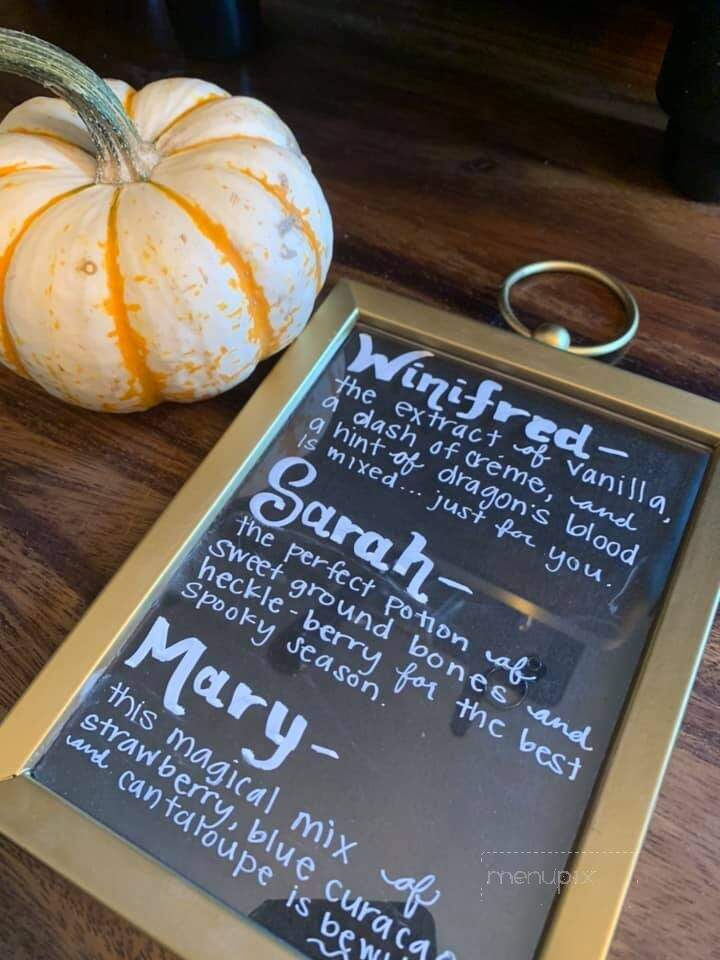 Winifred-
the extract of vanilla,
a dash of créme, and
a hint of dragon's blood
is mixed... just for you.
Sarah-
the perfect potion of
sweet ground bones and
heckle-berry for the best
spooky season
Mary-
this magical mix of
strawberry, blue curacao
and cantaloupe is
menupix